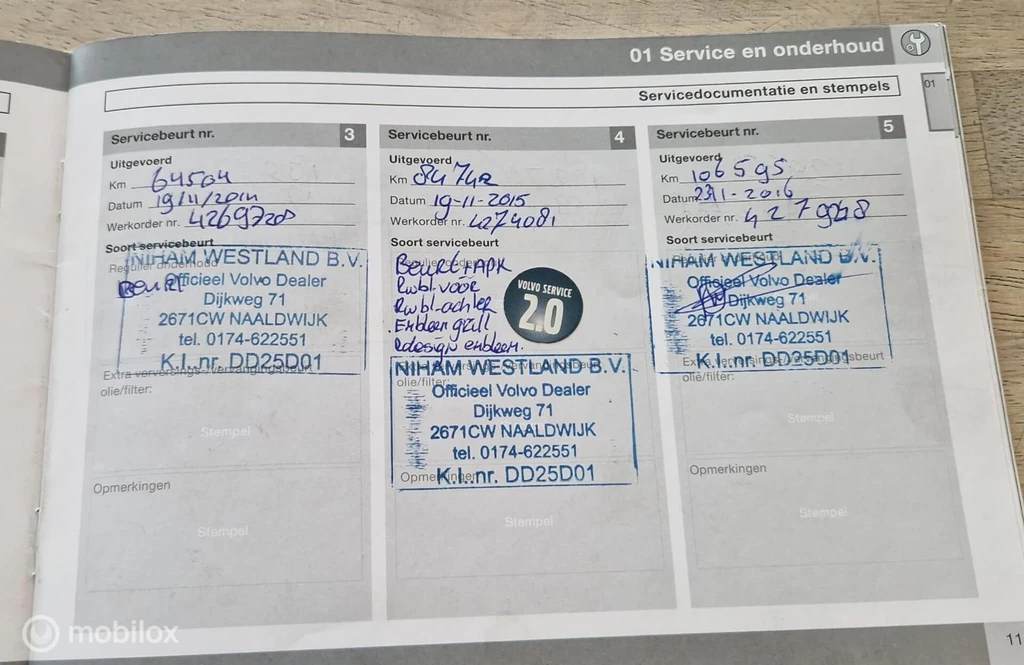 01 Service en onderhoud
01
Servicedocumentatie en stempels
Servicebeurt nr. 3
Uitgevoerd
Km 64504
Datum 19/11/2014
Werkorder nr. 4269720
Soort servicebeurt
Regulier onderhoud
Beurt
NIHAM WESTLAND B.V.
Officieel Volvo Dealer
Dijkweg 71
2671CW NAALDWIJK
tel. 0174-622551
K.I.nr. DD25D01
Extra verversings-/vervangingsbeurt
olie/filter:
Stempel
Opmerkingen
Stempel
Servicebeurt nr. 4
Uitgevoerd
Km 84742
Datum 19-11-2015
Werkorder nr. 4274081
Soort servicebeurt
Beurt + APK
Rwbl. voor
Rwbl. achter
Embleem grill
Rdesign embleem.
VOLVO SERVICE
2.0
NIHAM WESTLAND B.V.
Officieel Volvo Dealer
Dijkweg 71
2671CW NAALDWIJK
tel. 0174-622551
K.I.nr. DD25D01
olie/filter:
Opmerkingen
Stempel
Servicebeurt nr. 5
Uitgevoerd
Km 106595
Datum
Werkorder nr. 4279268
Soort servicebeurt
NIHAM WESTLAND B.V.
Officieel Volvo Dealer
Dijkweg 71
2671CW NAALDWIJK
tel. 0174-622551
K.I.nr. DD25D01
olie/filter:
Stempel
Opmerkingen
Stempel
11
mobilox